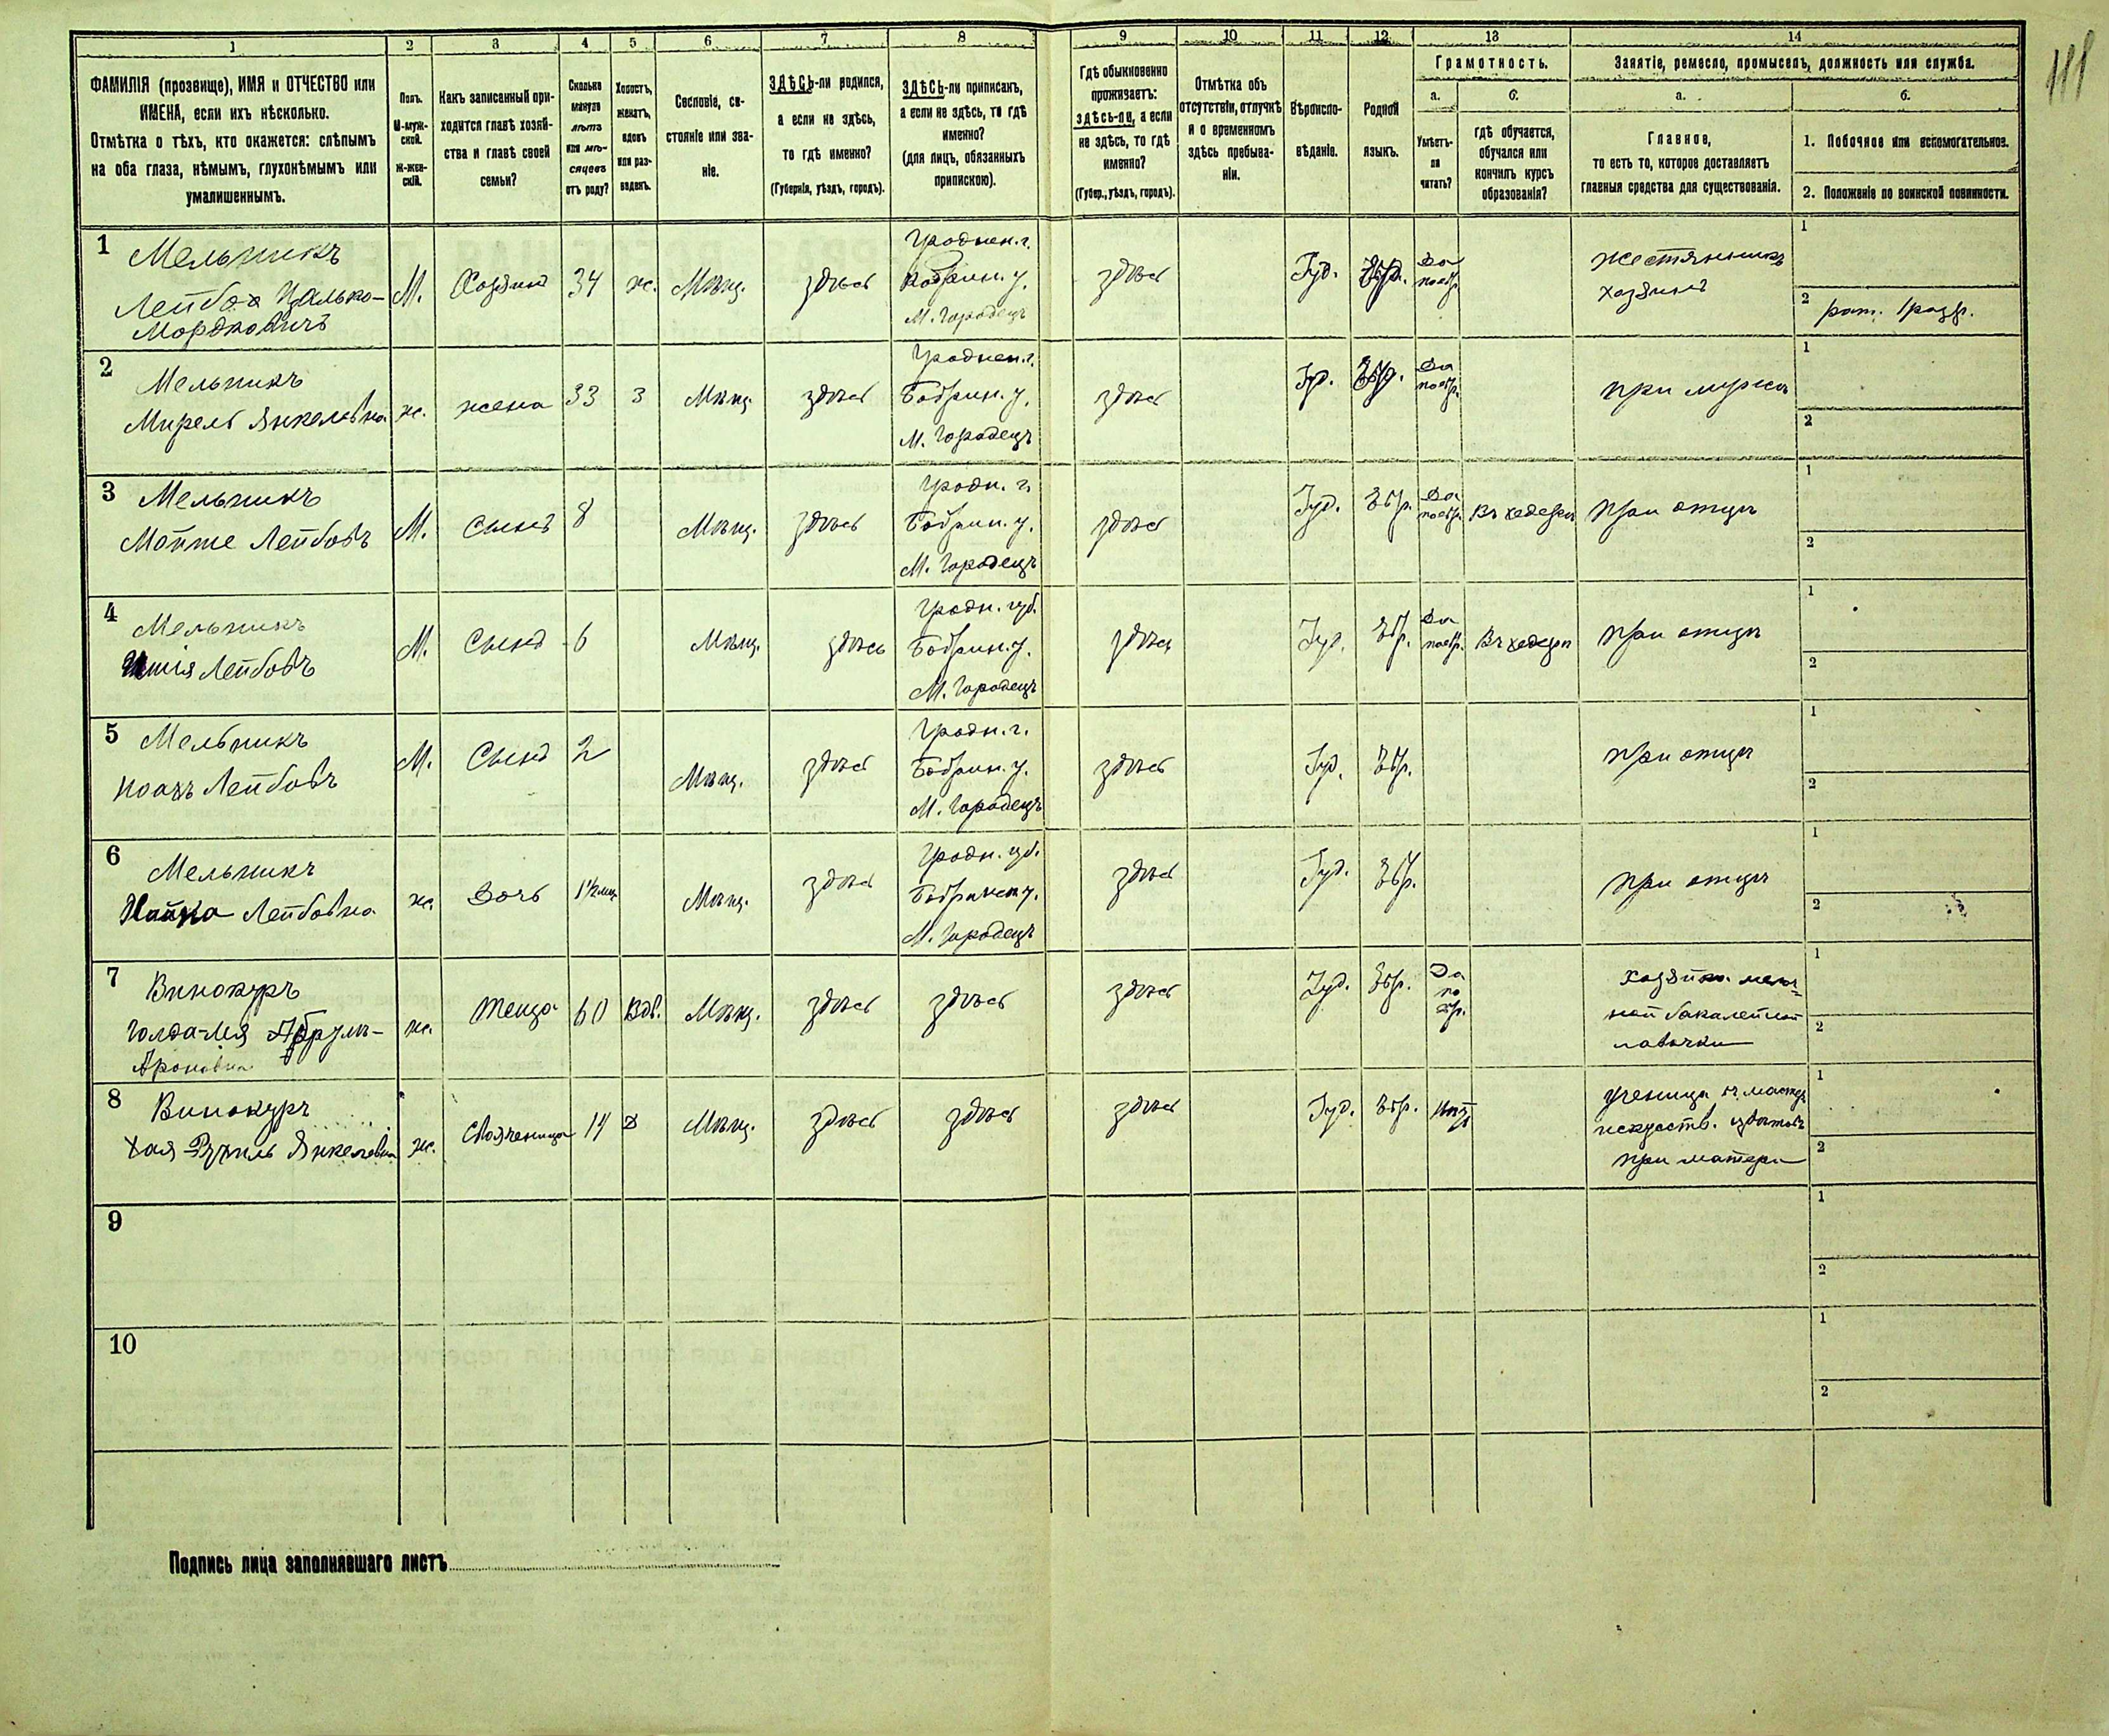 111
1 2 3 4 5 6 7 8 9 10 11 12 13 14
ФАМИЛІЯ (прозвище), ИМЯ и ОТЧЕСТВО или
ИМЕНА, если ихъ нѣсколько.
Отмѣтка о тѣхъ, кто окажется: слѣпымъ
на оба глаза, нѣмымъ, глухонѣмымъ или
умалишеннымъ.
Полъ.
М-муж-
ской.
Ж-жен-
скій.
Какъ записанный при-
ходится главѣ хозяй-
ства и главѣ своей
семьи?
Сколько
минуло
лѣтъ
или мѣ-
сяцевъ
отъ роду?
Холостъ,
женатъ,
вдовъ
или раз-
веденъ.
Сословіе, со-
стояніе или зва-
ніе.
ЗДѢСЬ-ли родился,
а если не здѣсь,
то гдѣ именно?
(Губернія, уѣздъ, городъ).
ЗДѢСЬ-ли приписанъ,
а если не здѣсь, то гдѣ
именно?
(для лицъ, обязанныхъ
припискою).
Гдѣ обыкновенно
проживаетъ:
здѣсь-ли, а если
не здѣсь, то гдѣ
именно?
(Губер., уѣздъ, городъ).
Отмѣтка объ
отсутствіи, отлучкѣ
и о временномъ
здѣсь пребыва-
ніи.
Вѣроиспо-
вѣданіе.
Родной
языкъ.
Грамотность.
а.
Умѣетъ-
ли
читать?
б.
гдѣ обучается,
обучался или
кончилъ курсъ
образованія?
Занятіе, ремесло, промыселъ, должность или служба.
а.
Главное,
то есть то, которое доставляетъ
главныя средства для существованія.
б.
1. Побочное или вспомогательное.
2. Положеніе по воинской повинности.
1 Мельникъ
Лейба Цалько-
Мордковичъ
М. Хозяинъ 34 ж. Мѣщ. здѣсь
Гроднен. г.
Кобрин. у.
М. Городецъ
здѣсь Іуд. Евр.
Да
по евр.
жестянникъ
хозяинъ
1
2 рат. 1 разр.
2 Мельникъ
Мирель Янкелевна
ж. жена 33 з Мѣщ. здѣсь
Гроднен. г.
Кобрин. у.
М. Городецъ
здѣсь Іуд. Евр.
Да
по евр.
при мужѣ
1
2
3 Мельникъ
Мошке Лейбовъ
М. Сынъ 8 Мѣщ. здѣсь
Гродн. г.
Кобрин. у.
М. Городецъ
здѣсь Іуд. Евр.
Да
по евр.
Въ хедерѣ при отцѣ
1
2
4 Мельникъ
Лейбовъ
М. Сынъ 6 Мѣщ. здѣсь
Гродн. губ.
Кобрин. у.
М. Городецъ
здѣсь Іуд. Евр.
Да
по евр.
Въ хедерѣ при отцѣ
1
2
5 Мельникъ
Ноахъ Лейбовъ
М. Сынъ 2 Мѣщ. здѣсь
Гродн. г.
Кобрин. у.
М. Городецъ
здѣсь Іуд. Евр. при отцѣ
1
2
6 Мельникъ
Лейбовна
ж. Дочь 1½ мѣс Мѣщ. здѣсь
Гродн. губ.
Кобринск у.
М. Городецъ
здѣсь Іуд. Евр. при отцѣ
1
2
7 Винокуръ
Голда-Лея
Ароновна
ж. теща 60 Вдв. Мѣщ. здѣсь здѣсь здѣсь Іуд. Евр.
Да
по
евр.
хозяйка мелоч-
ной бакалейной
лавочки
1
2
8 Винокуръ
Хая Янкелевна
ж. Свояченица 14 д Мѣщ. здѣсь здѣсь здѣсь Іуд. Евр. Нѣтъ
ученица въ мастер
искуств. цвѣтовъ
при матери
1
2
9
1
2
10
1
2
Подпись лица заполнявшаго листъ